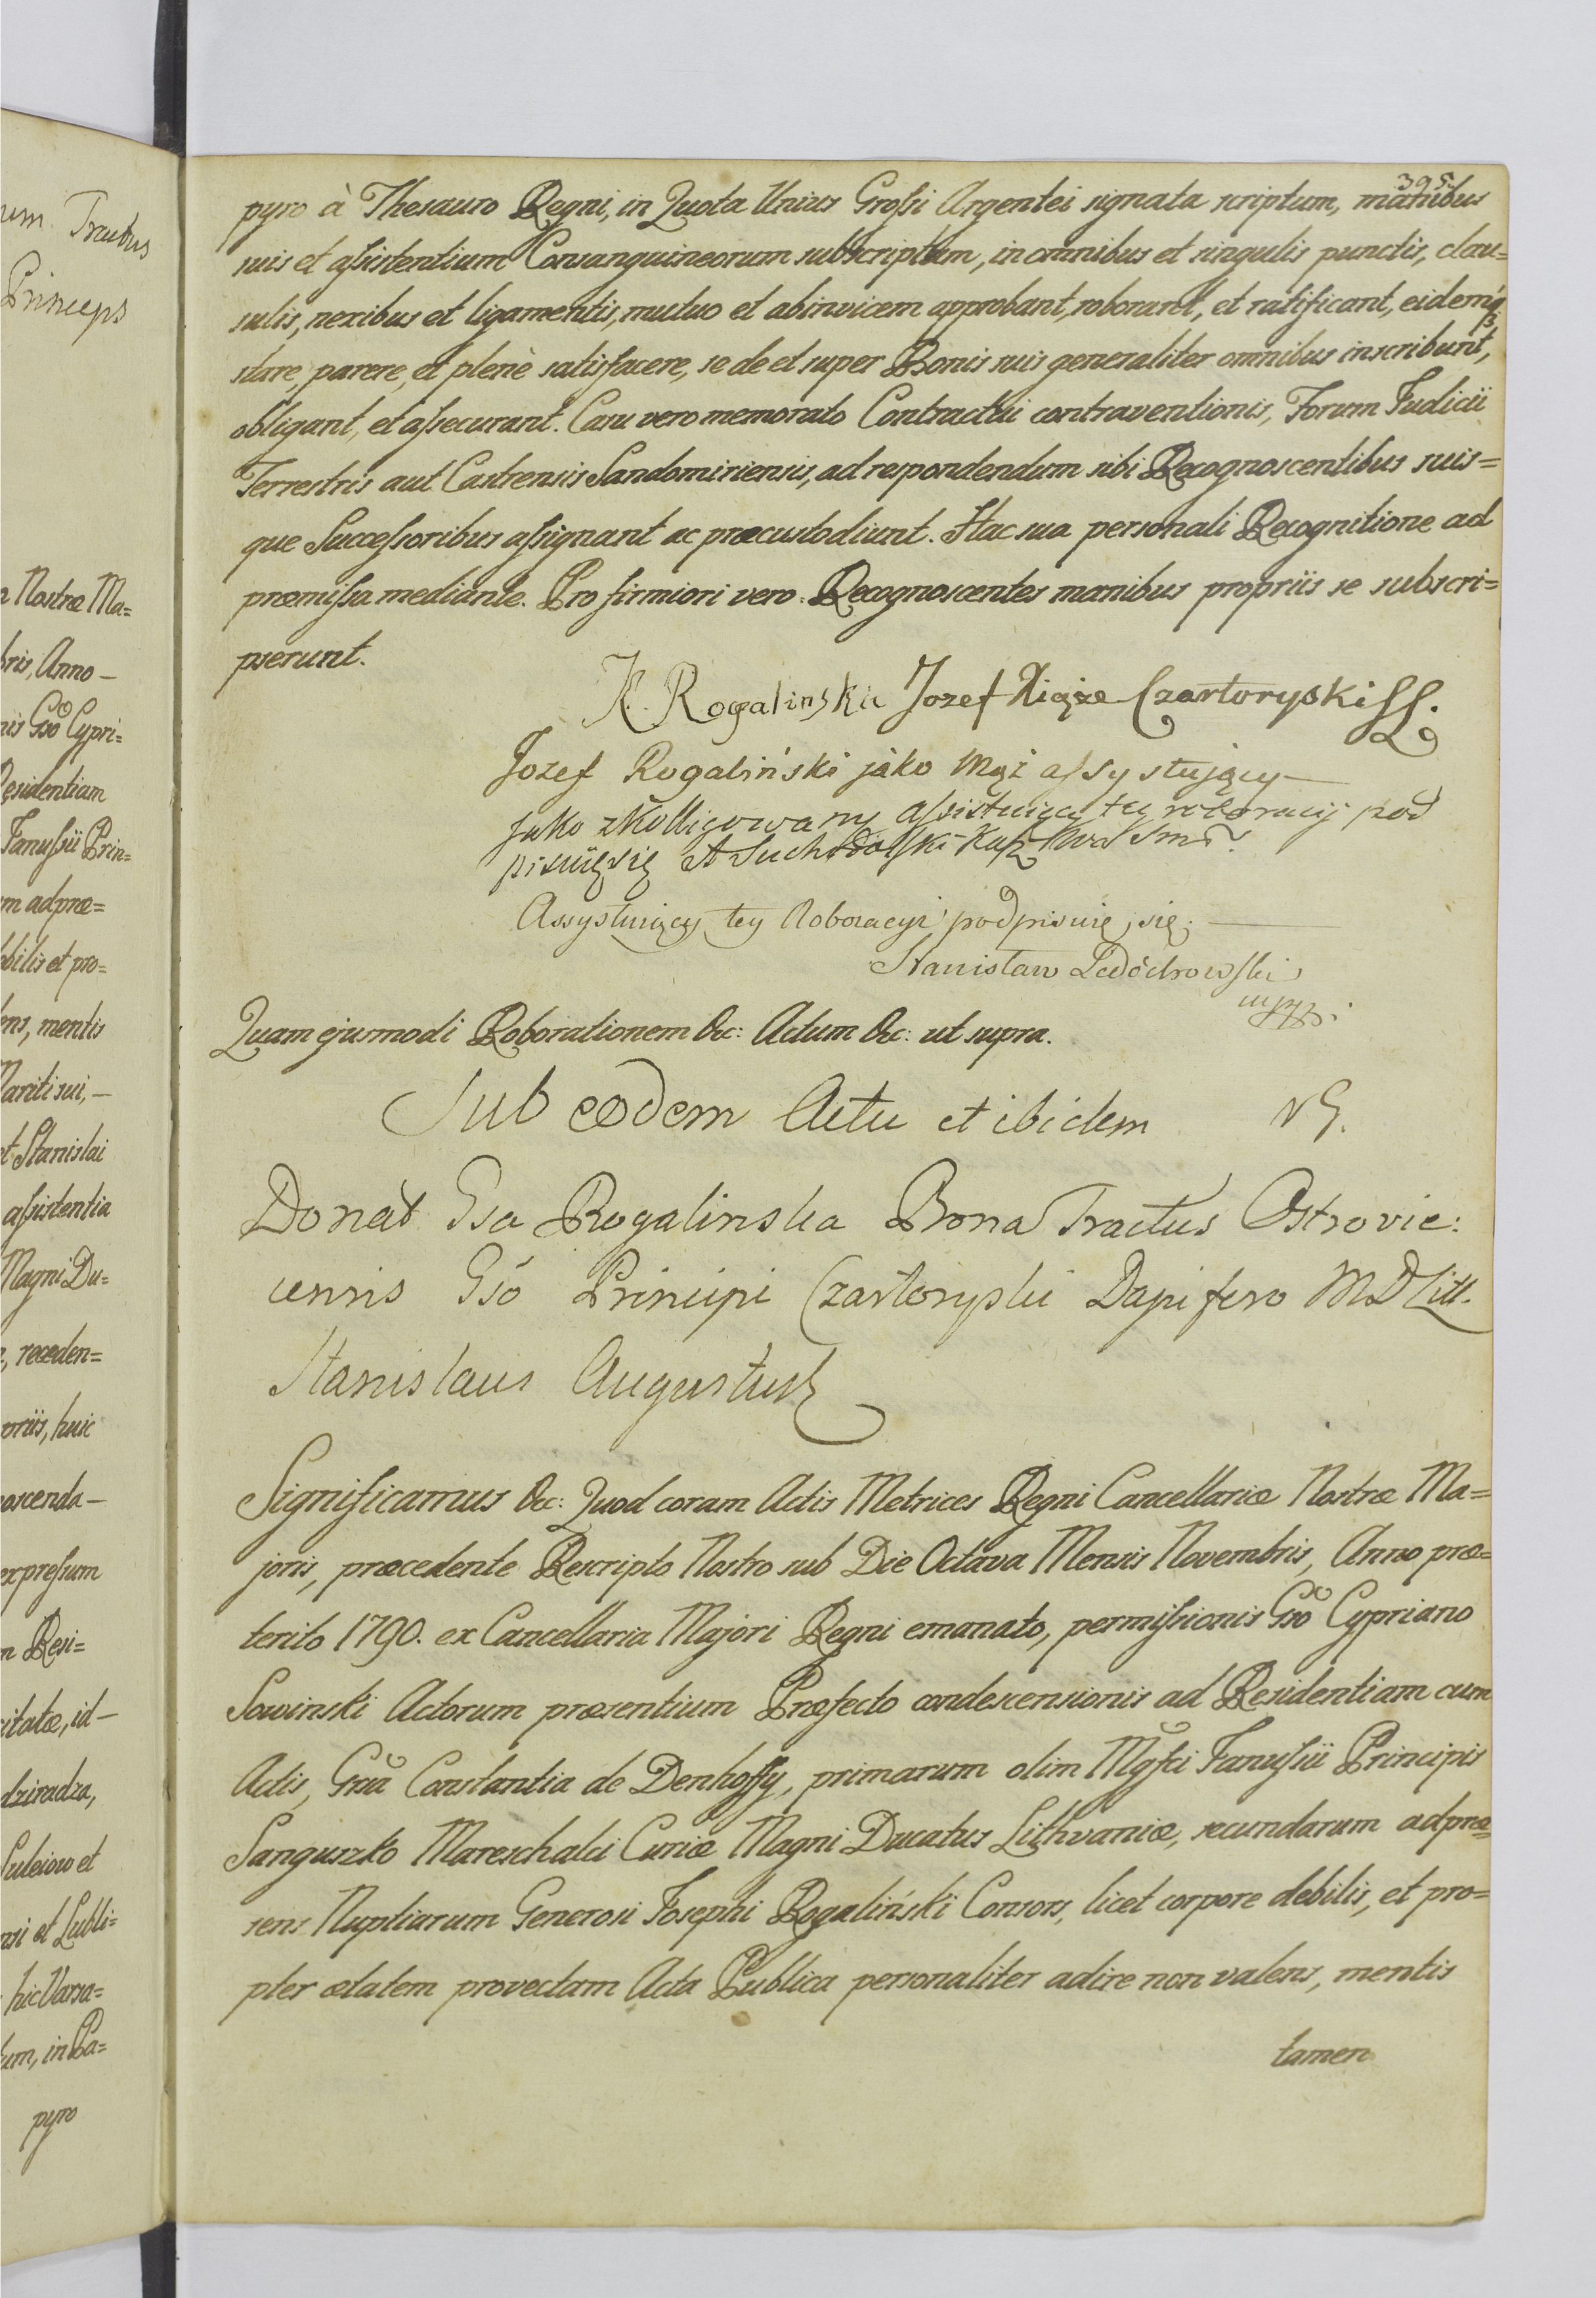 um Tractus
Princeps
a Nostræ Ma=
bris, Anno —
nis Gsō Cypri=
Residentiam
Janussii Prin=
m ad præ=
bilis et pro=
ens, mentis
Mariti sui, —
et Stanislai
assistentia
Magni Du=
receden=
oriis, huic
oscenda —
expressum
n Resi=
citatæ, id —
dziradza,
Suleiow et
nsi et Lubli=
hic Varsa=
tum, in Pa=
pyro
395
pyro à Thesauro Regni, in Quota Unius Grossi Argentei signata scriptum, manibus
suis et assistentium Consanguineorum subscriptum, in omnibus et singulis punctis, clau=
sulis, nexibus et ligamentis, mutuo et abinvicem approbant, roborant, et ratificant, eidemq3
stare, parere, et plenè satisfacere, se de et super Bonis suis generaliter omnibus inscribunt,
obligant, et assecurant. Casu vero memorato Contractui contraventionis, Forum Judicii
Terrestris aut Castrensis Sandomiriensis, ad respondendum sibi Recognoscentibus suis=
que Successoribus assignant ac præcustodiunt. Hac sua personali Recognitione ad
præmissa mediante. Pro firmiori vero Recognoscentes manibus propriis se subscri=
pserunt.
K. Rogalinska Jozef Xiąże Czartoryski SL.
Jozef Rogaliński jáko Mąż assystujący —
Jako zkolligowany assistuiąc tey roboracyi pod
pisuię się A Suchodolski Kasz
Assystuiący tey Roboracyi podpisuię się. —
Stanisław Ledóchowski
mppr.
Quam ejusmodi Roborationem &c: Actum &c: ut supra.
Sub eodem Actu et ibidem NG.
Donat Gsa Rogalinska Bona Tractus Ostrovie:
censis Gsō Principi Czartoryski Dapifero MD Litt.
Stanislaus Augustus
Significamus &c: Quod coram Actis Metrices Regni Cancellariæ Nostræ Ma=
joris, præcedente Rescripto Nostro sub Die Octava Mensis Novembris, Anno præ=
terito 1790. ex Cancellaria Majori Regni emanato, permissionis Gsō Cypriano
Sowinski Actorum præsentium Præfecto condescensionis ad Residentiam cum
Actis, Gsā Constantia de Denhoffy, primarum olim Mgfci Janussii Principis
Sanguszko Mareschalci Curiæ Magni Ducatus Lithvaniæ, secundarum ad præ=
sens Nuptiarum Generosi Josephi Rogaliński Consors, licet corpore debilis, et pro=
pter ætatem provectam Acta Publica personaliter adire non valens, mentis
tamen